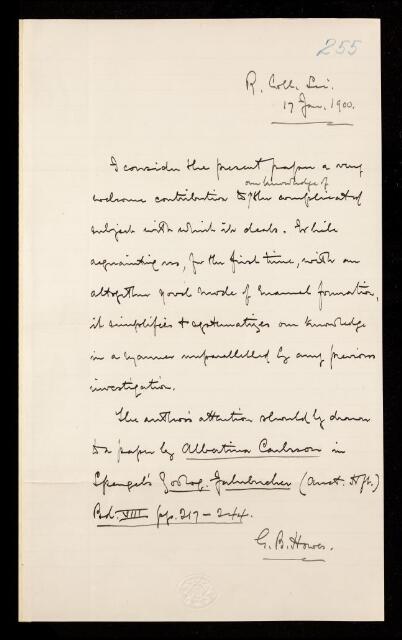 255
R. Coll. Sci.
17 Jan. 1900.
I consider the present paper a very
our knowledge of
welcome contribution to the complicated
subject with which it deals. While
acquainting us, for the first time, with an
altogether novel mode of enamel formation,
it simplifies & systematizes our knowledge
in a manner unparallelled by any previous
investigation.
The author's attention should be drawn
to a paper by Albertina Carlsson in
Spengel's Zoolog. Jahrbucher (Anat. Hft.)
Bd. VIII pp. 217-244.
G. B. Howes.